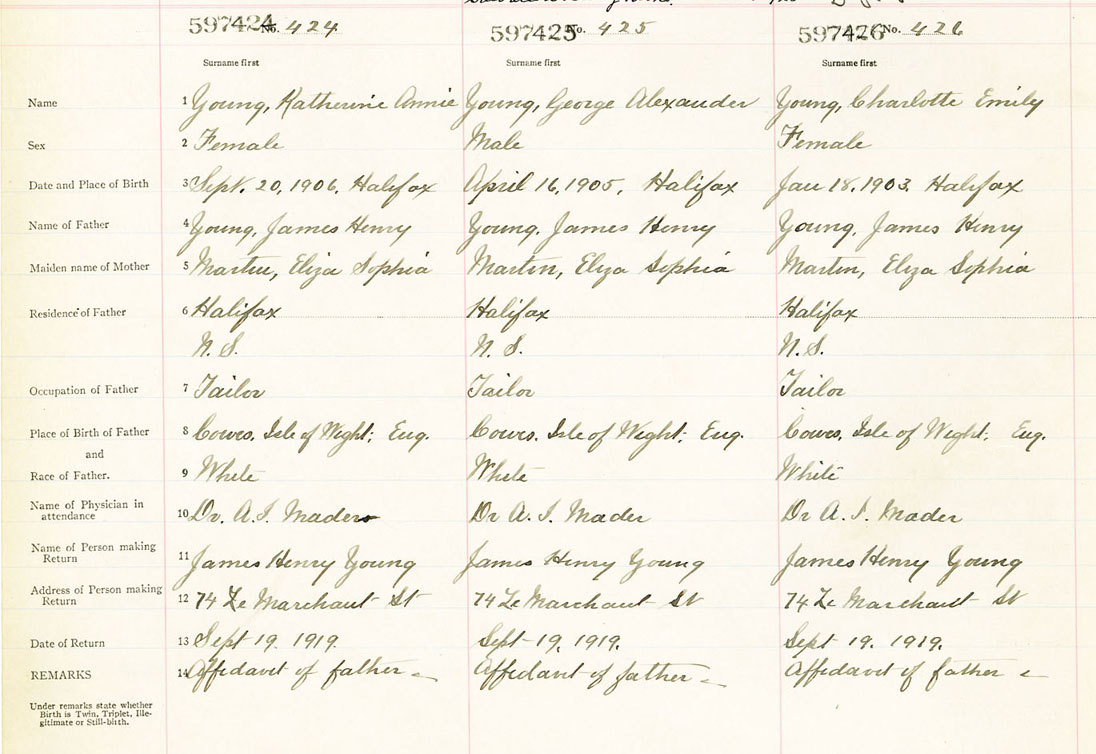 597424 No. 424 597425 No. 425 597426 No. 426
Surname first Surname first Surname first
Name 1 Young, Katherine Annie Young, George Alexander Young, Charlotte Emily
Sex 2 Female Male Female
Date and Place of Birth 3 Sept. 20, 1906, Halifax April 16, 1905, Halifax Jan 18, 1903. Halifax
Name of Father 4 Young, James Henry Young. James Henry Young, James Henry
Maiden name of Mother 5 Martin, Eliza Sophia Martin, Eliza Sophia Martin, Eliza Sophia
Residence of Father 6 Halifax Halifax Halifax
N. S. N. S. N. S.
Occupation of Father 7 Tailor Tailor Tailor
Place of Birth of Father 8 Cowes, Isle of Wight, Eng. Cowes. Isle of Wight, Eng. Cowes. Isle of Wight, Eng.
and
Race of Father. 9 White White White
Name of Physician in
attendance 10 Dr. A. I. Mader Dr A. I. Mader Dr A. I. Mader
Name of Person making
Return 11 James Henry Young James Henry Young James Henry Young
Address of Person making
Return 12 74 Le Marchant St 74 Le Marchant St 74 Le Marchant St
Date of Return 13 Sept 19. 1919. Sept 19, 1919. Sept 19. 1919.
REMARKS 14 Affidavit of father Affidavit of father Affidavit of father
Under remarks state whether
Birth is Twin, Triplet, Ille-
gitimate or Still-birth.